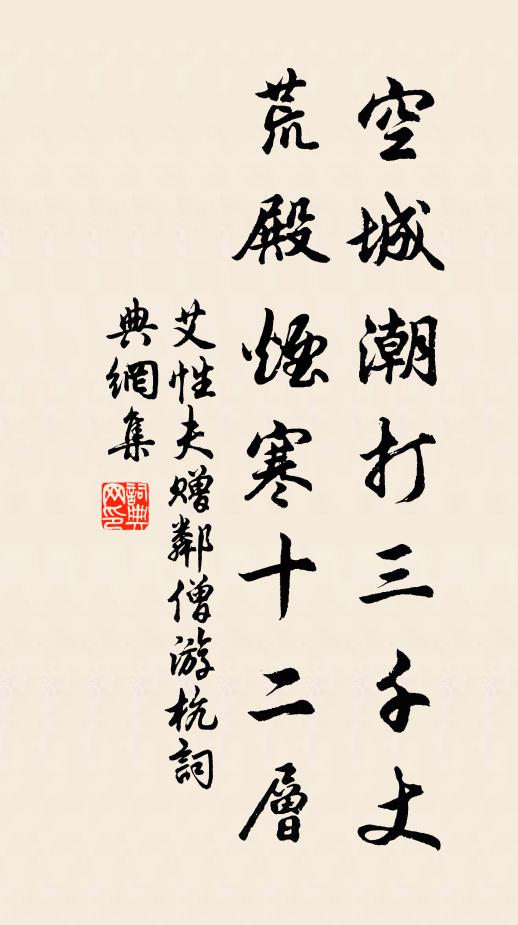 空城潮打三千丈
荒殿煙寒十二層
艾性夫贈鄰僧游杭詞
典網集
詞典
网印